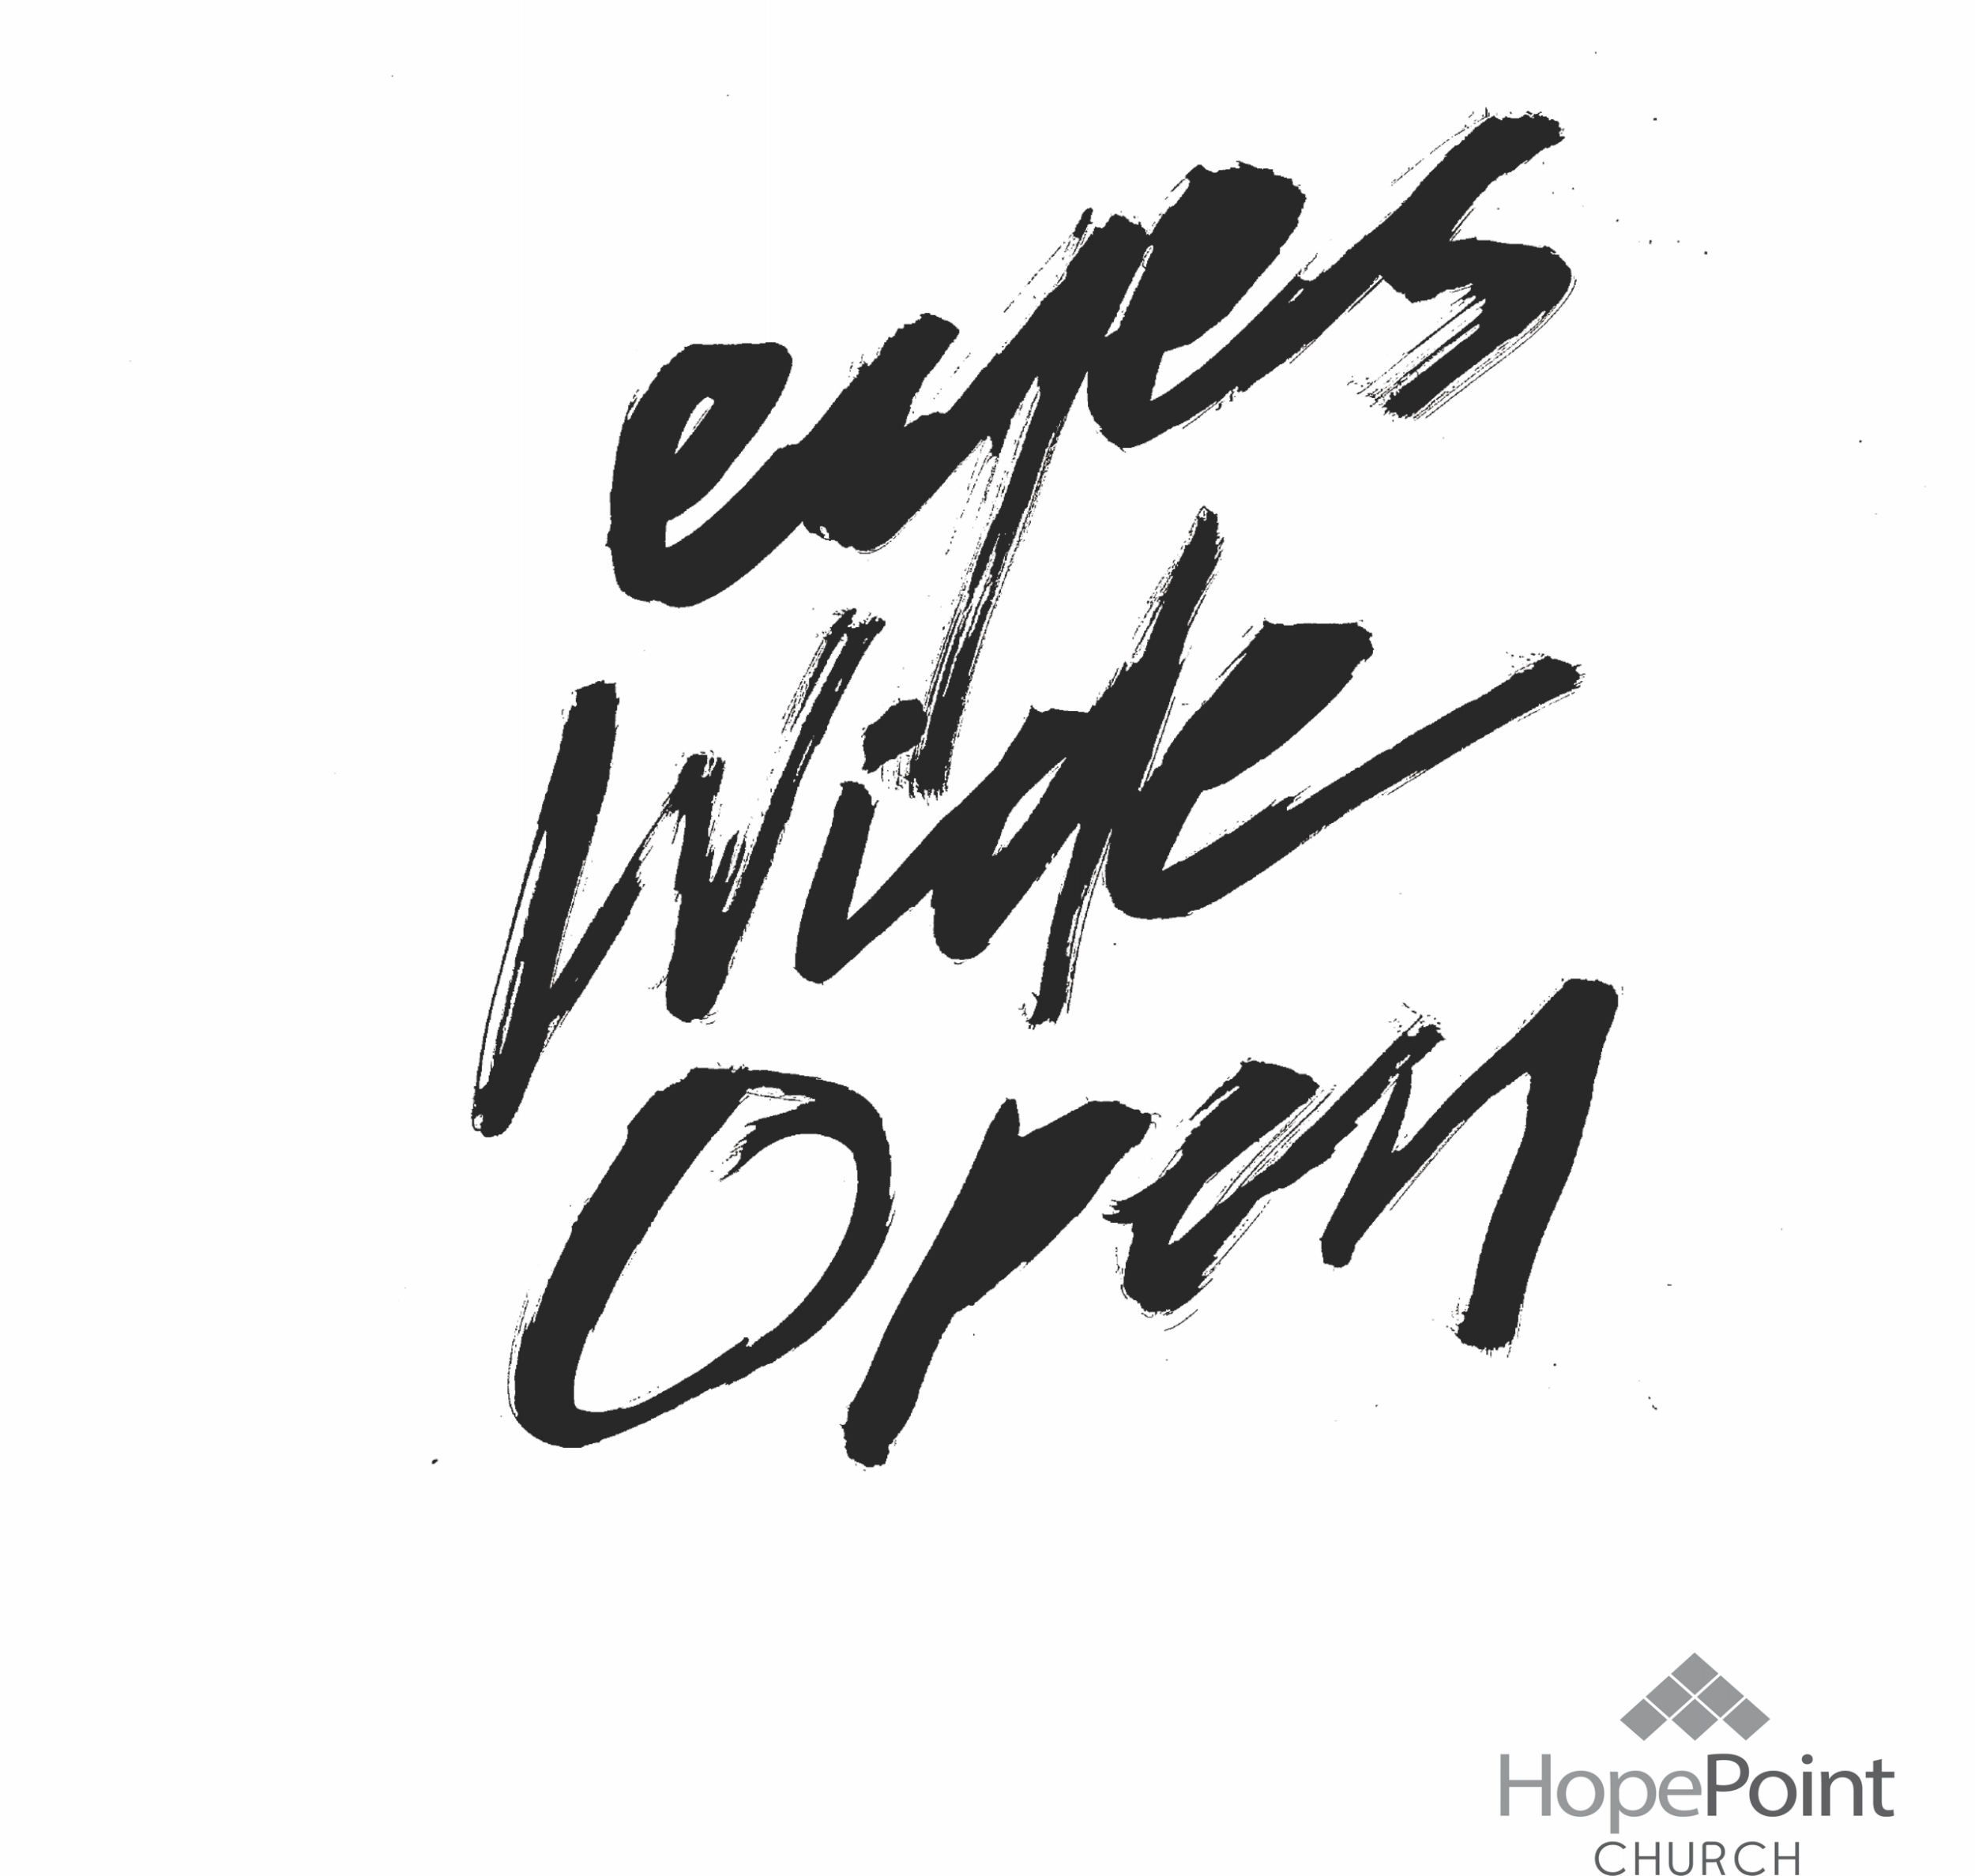 eyes
Wide
Open
HopePoint
CHURCH